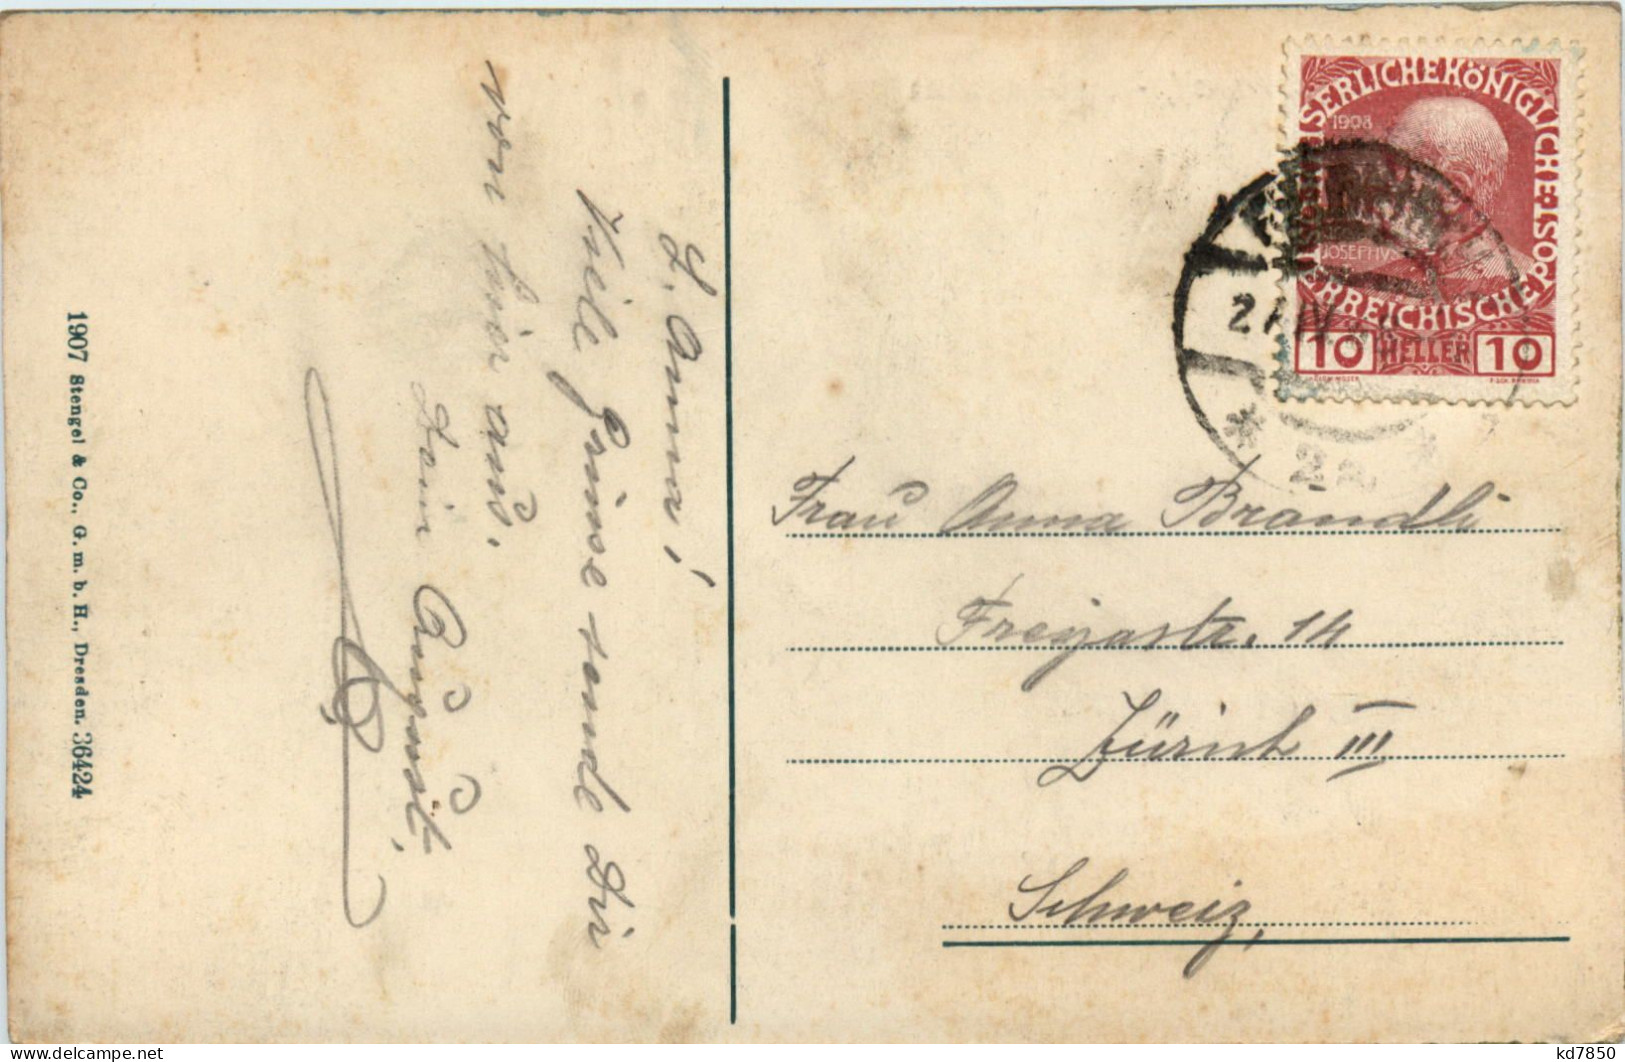 L. Anna!
Viele Grüsse sende Dir
von hier aus.
Dein August.
1907 Stengel & Co., G. m. b. H., Dresden. 36424
KAISERLICHE KÖNIGLICHE
ÖSTERREICHISCHE POST
1908
JOSEPHVS
10 HELLER 10
Frau Anna Brandli
Freyastr. 14
Zürich III
Schweiz,
kd7850